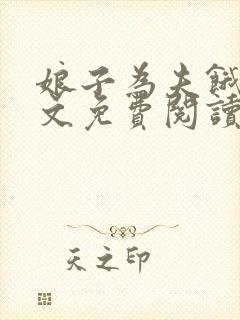 娘子為夫餓
文免費閱讀
天之印